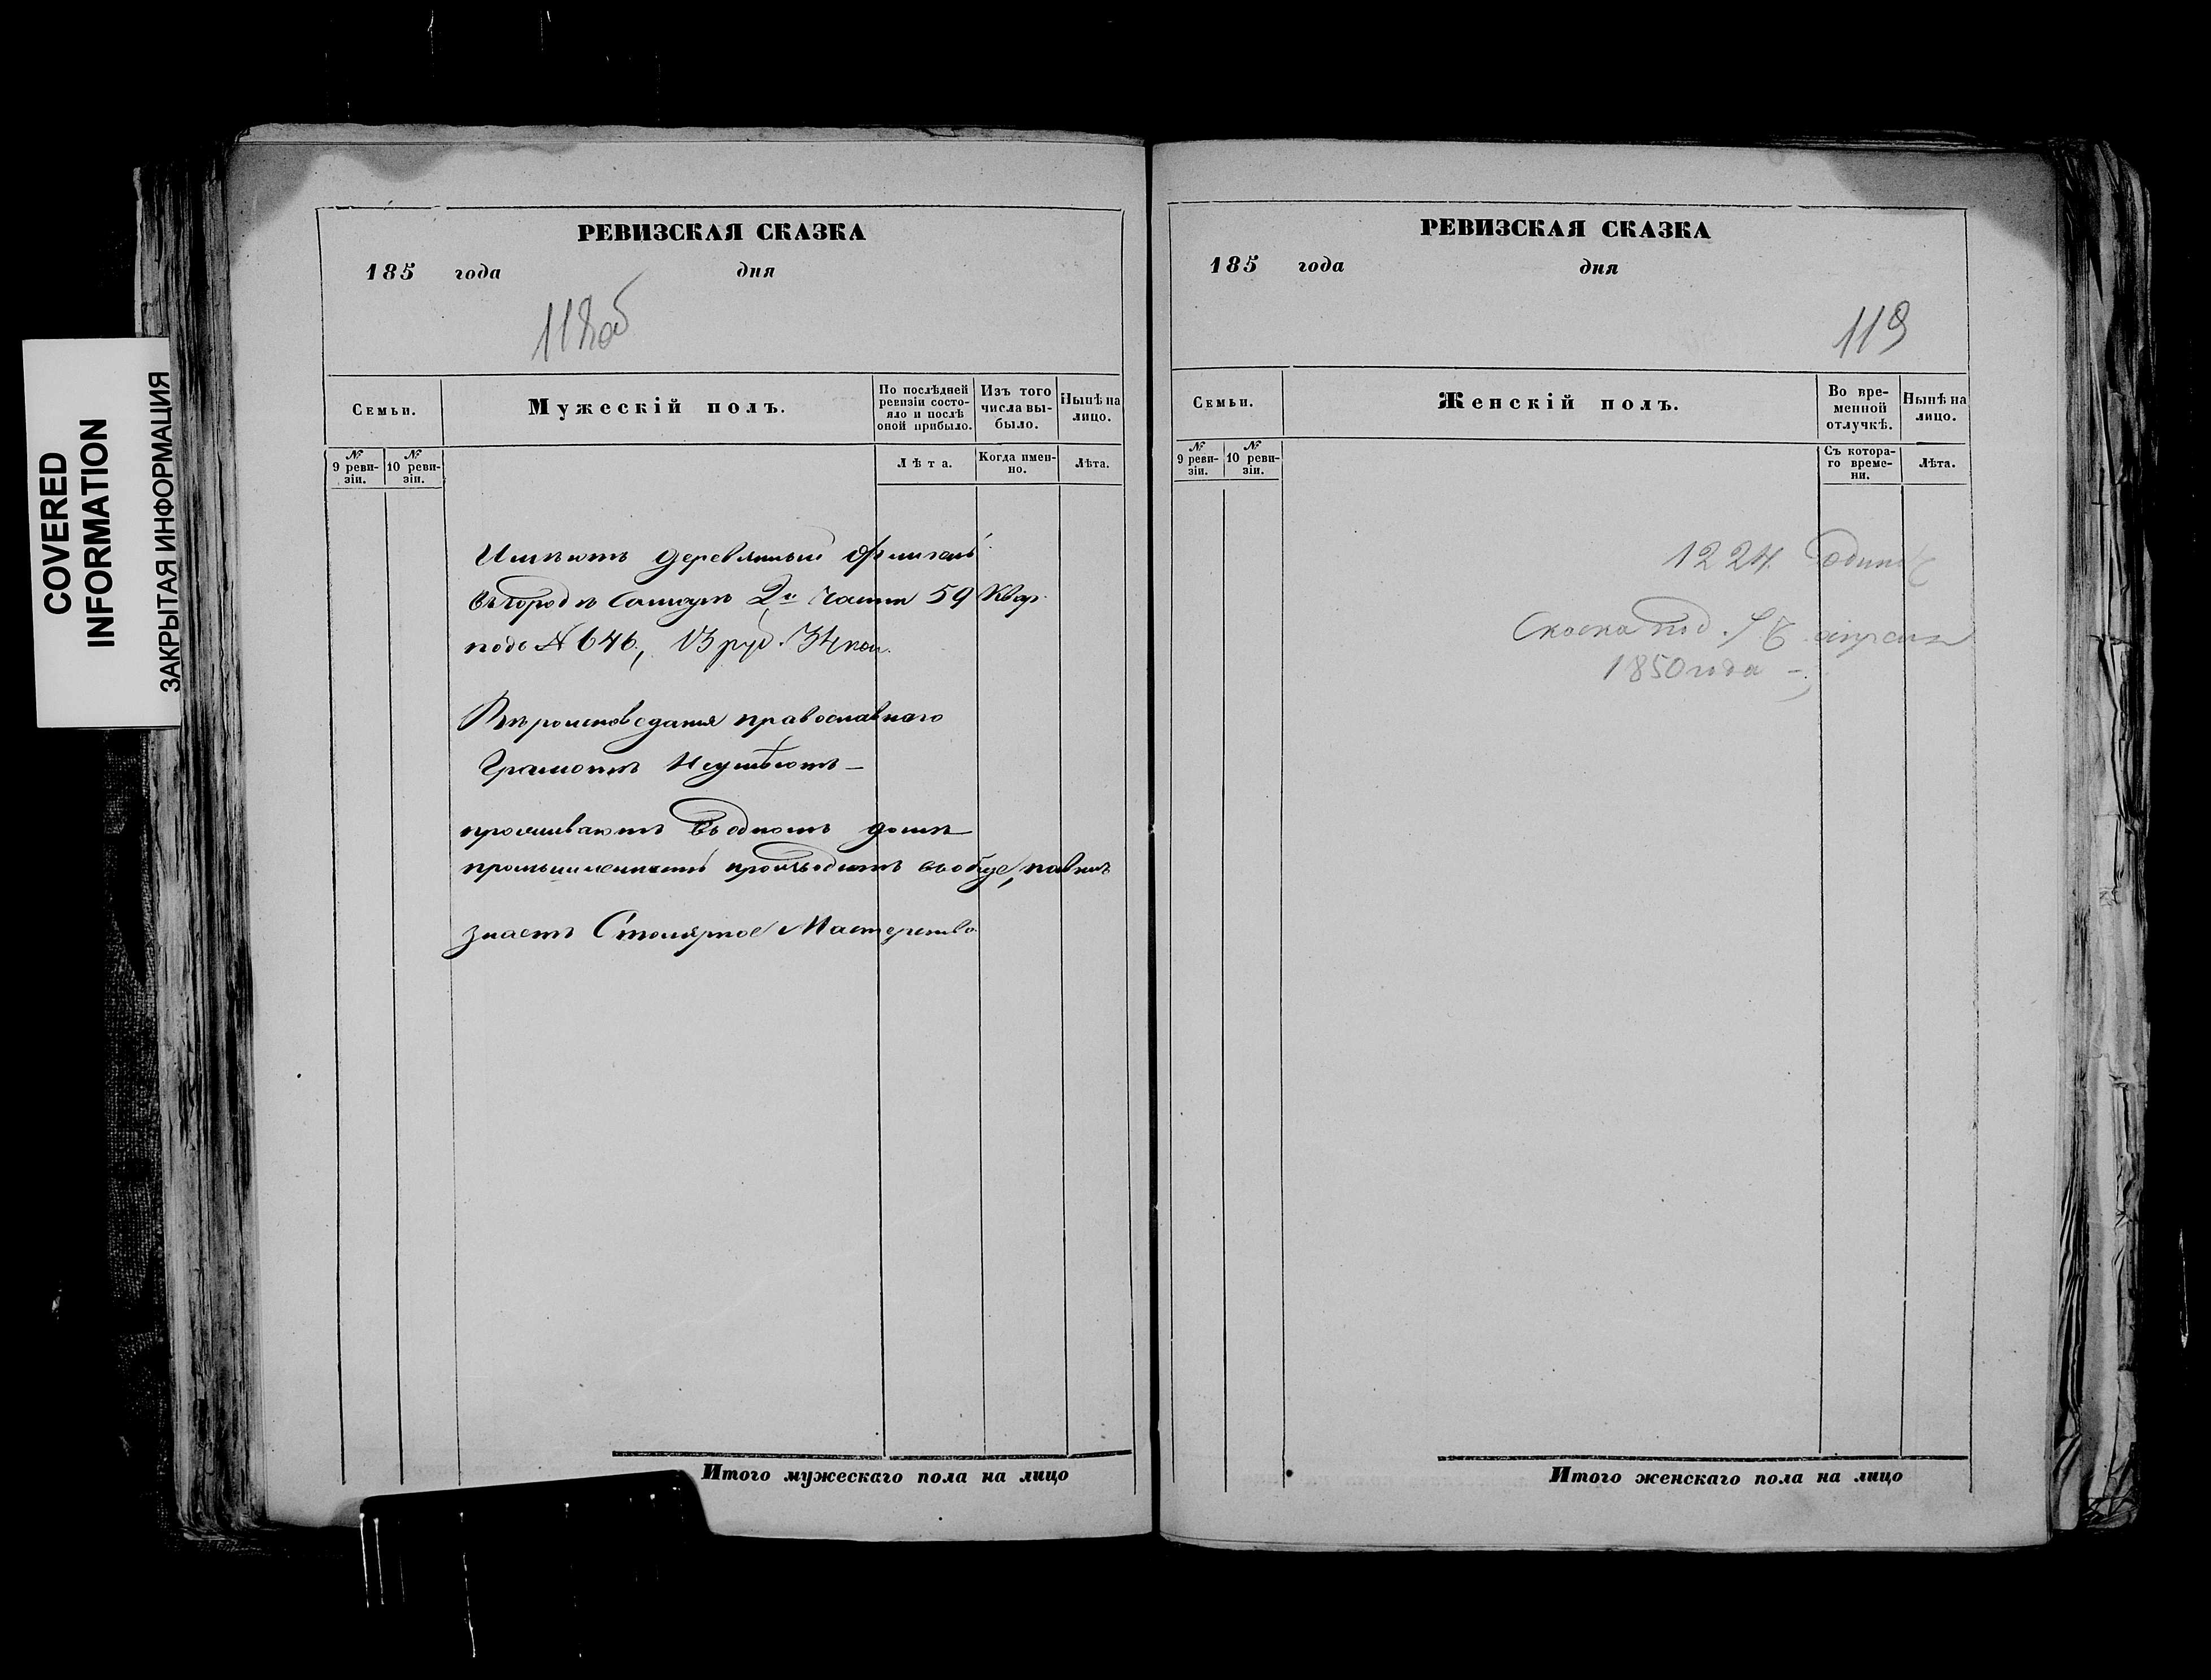 COVERED
INFORMATION
ЗАКРЫТАЯ ИНФОРМАЦИЯ
РЕВИЗСКАЯ СКАЗКА
185 года дня
118об
Семьи.
Мужескій полъ.
По послѣдней ревизіи состо-
яло и послѣ
оной прибыло.
Изъ того
числа вы-
было.
Нынѣ на
лицо.
№
9 реви-
зіи.
№
10 реви-
зіи.
Лѣта.
Когда имен-
но.
Лѣта.
Имѣютъ деревянный флигель
въ городѣ 2й части 59 Квар.
подъ № 646, 13 руб. 34 коп.
Вѣроисповеданія православнаго
Грамотѣ Неумѣютъ —
проживаютъ въ одномъ домѣ
промышленность производятъ вообще,
знаетъ Столярное Мастерство
Итого мужескаго пола на лицо
РЕВИЗСКАЯ СКАЗКА
185 года дня
119
Семьи.
Женскій полъ.
Во вре-
менной
отлучкѣ.
Нынѣ на
лицо.
№
9 реви-
зіи.
№
10 реви-
зіи.
Съ котора-
го време-
ни.
Лѣта.
1224
Скаска под. апреля
1850 года —
Итого женскаго пола на лицо